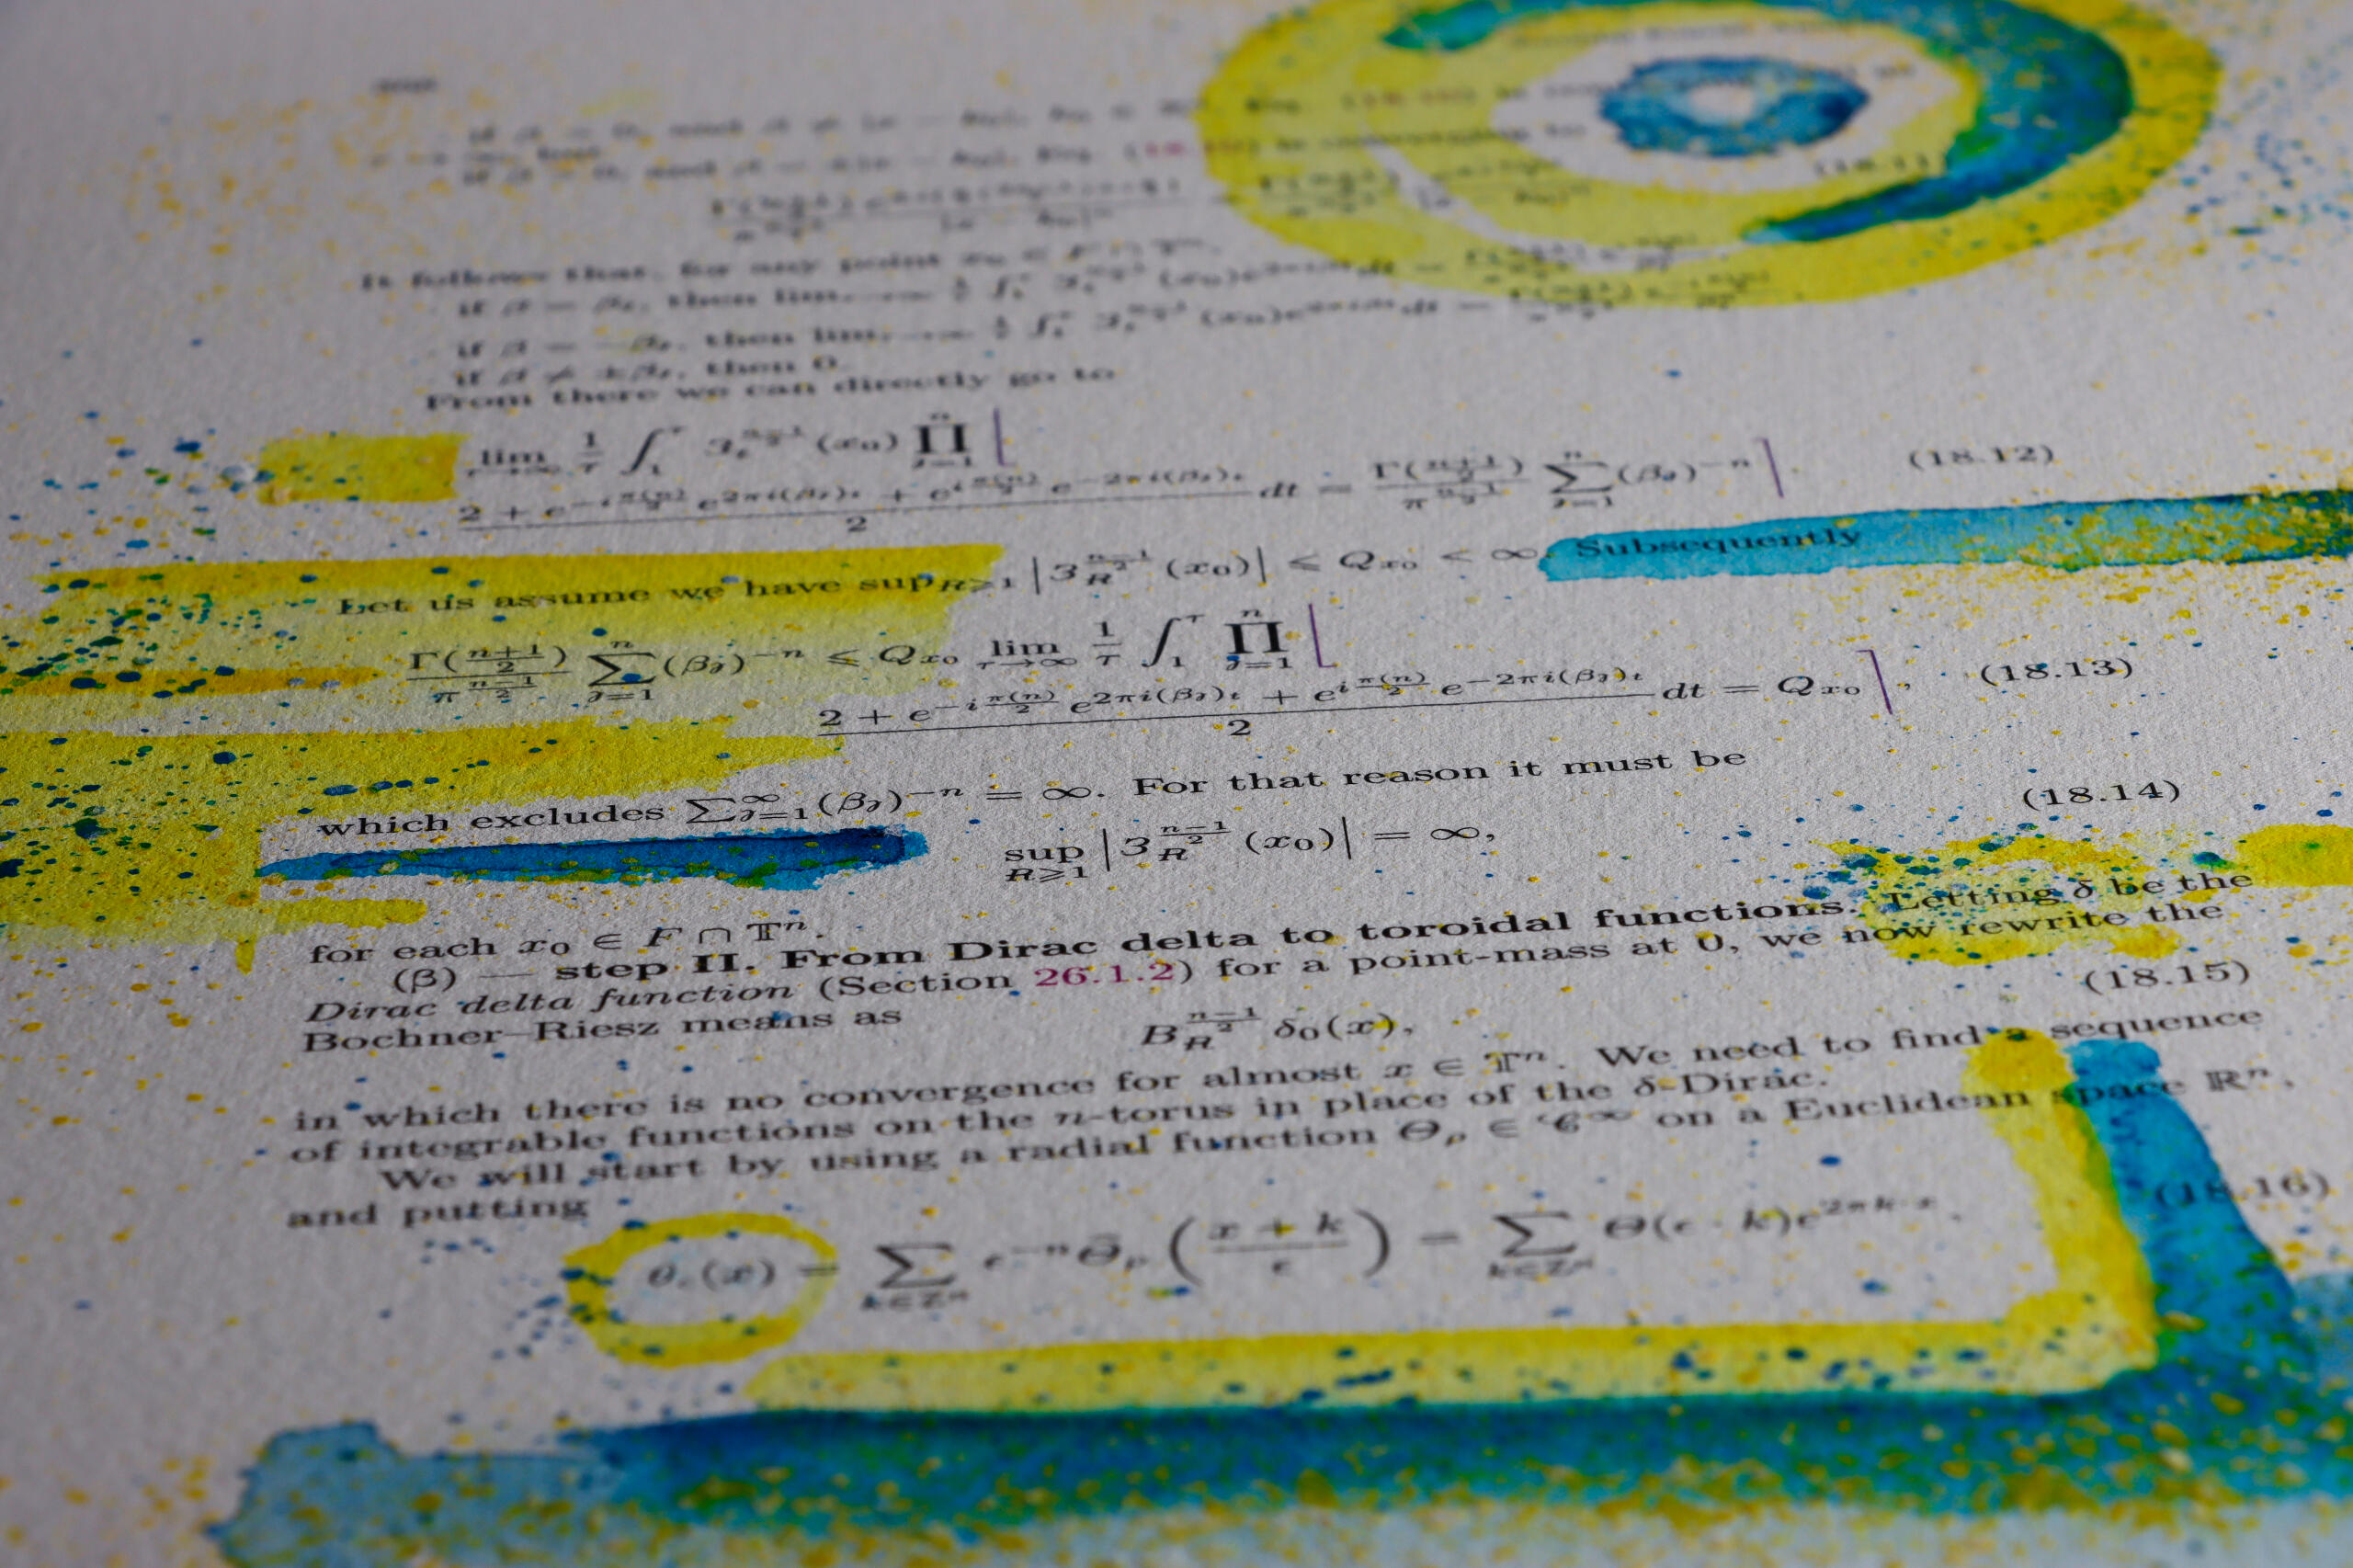 It follows that, for any point x₀ ∈ F ∩ 𝕋ⁿ,
if β = βⱼ, then lim
if β = −βⱼ, then lim
if β ≠ ±βⱼ, then 0.
From there we can directly go to
lim_{τ→∞} 1/τ ∫₁^τ ℨ_t^{(n−1)/2} (x₀) ∏_{j=1}^n ⌊
(2 + e^{−i π(n)/2} e^{2πi(βⱼ)t} + e^{i π(n)/2} e^{−2πi(βⱼ)t})/2 dt = Γ((n+1)/2)/π^{(n−1)/2} ∑_{j=1}^n (βⱼ)^{−n} ⌉. (18.12)
Let us assume we have sup_{R⩾1} |ℨ_R^{(n−1)/2} (x₀)| ⩽ Q_{x₀} < ∞. Subsequently
Γ((n+1)/2)/π^{(n−1)/2} ∑_{j=1}^n (βⱼ)^{−n} ⩽ Q_{x₀} lim_{τ→∞} 1/τ ∫₁^τ ∏_{j=1}^n ⌊
(2 + e^{−i π(n)/2} e^{2πi(βⱼ)t} + e^{i π(n)/2} e^{−2πi(βⱼ)t})/2 dt = Q_{x₀} ⌉, (18.13)
which excludes ∑_{j=1}^∞ (βⱼ)^{−n} = ∞. For that reason it must be
sup_{R⩾1} |ℨ_R^{(n−1)/2} (x₀)| = ∞, (18.14)
for each x₀ ∈ F ∩ 𝕋ⁿ.
(β) — step II. From Dirac delta to toroidal functions. Letting δ be the
Dirac delta function (Section 26.1.2) for a point-mass at 0, we now rewrite the
Bochner–Riesz means as
B_R^{(n−1)/2} δ₀(x), (18.15)
in which there is no convergence for almost x ∈ 𝕋ⁿ. We need to find a sequence
of integrable functions on the n-torus in place of the δ-Dirac.
We will start by using a radial function Θ_ρ ∈ 𝒞^∞ on a Euclidean space ℝⁿ,
and putting
θ_ε(x) = ∑_{k∈ℤⁿ} ε^{−n} Θ̂_ρ ((x + k)/ε) = ∑_{k∈ℤⁿ} Θ(ε · k)e^{2πk·x}, (18.16)